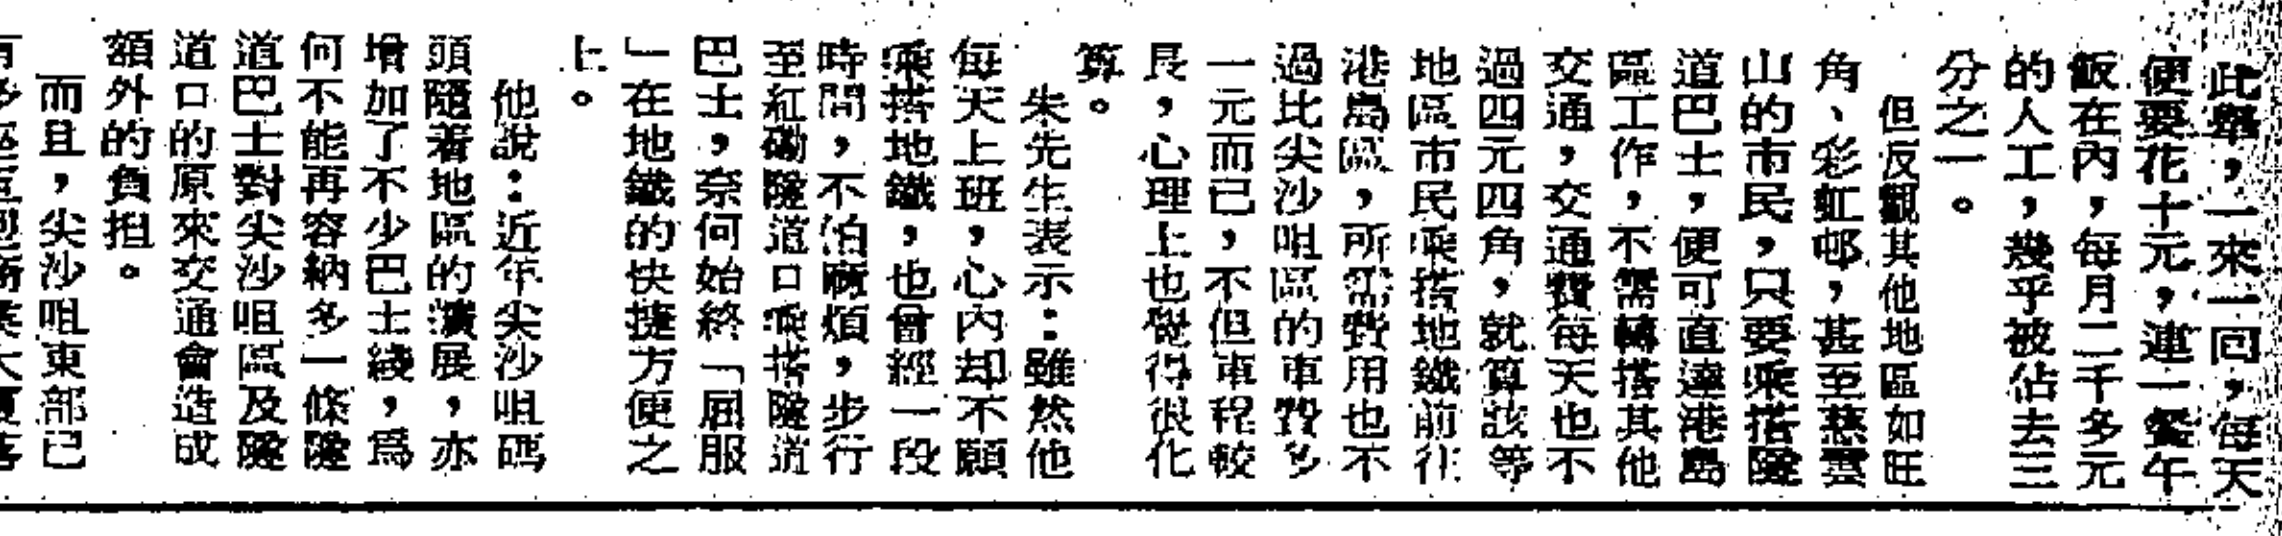 此舉，一來一回，每天
便要花十元，連一餐午
飯在內，每月二千多元
的人工，幾乎被佔去三
分之一。
但反觀其他地區如旺
角、彩虹邨，甚至慈雲
山的市民，只要乘搭隧
道巴士，便可直達港島
區工作，不需轉搭其他
交通，交通費每天也不
過四元四角，就算該等
地區市民乘搭地鐵前往
港島區，所需費用也不
過比尖沙咀區的車費多
一元而已，不但車程較
長，心理上也覺得很化
算。
朱先生表示：雖然他
每天上班，心內却不願
乘搭地鐵，也曾經一段
時間，不怕麻煩，步行
至紅磡隧道口乘搭隧道
巴士，奈何始終「屈服
」在地鐵的快捷方便之
上。
他說：近年尖沙咀碼
頭隨着地區的擴展，亦
增加了不少巴士綫，爲
何不能再容納多一條隧
道巴士對尖沙咀區及隧
道口的原來交通會造成
額外的負担。
而且，尖沙咀東部已